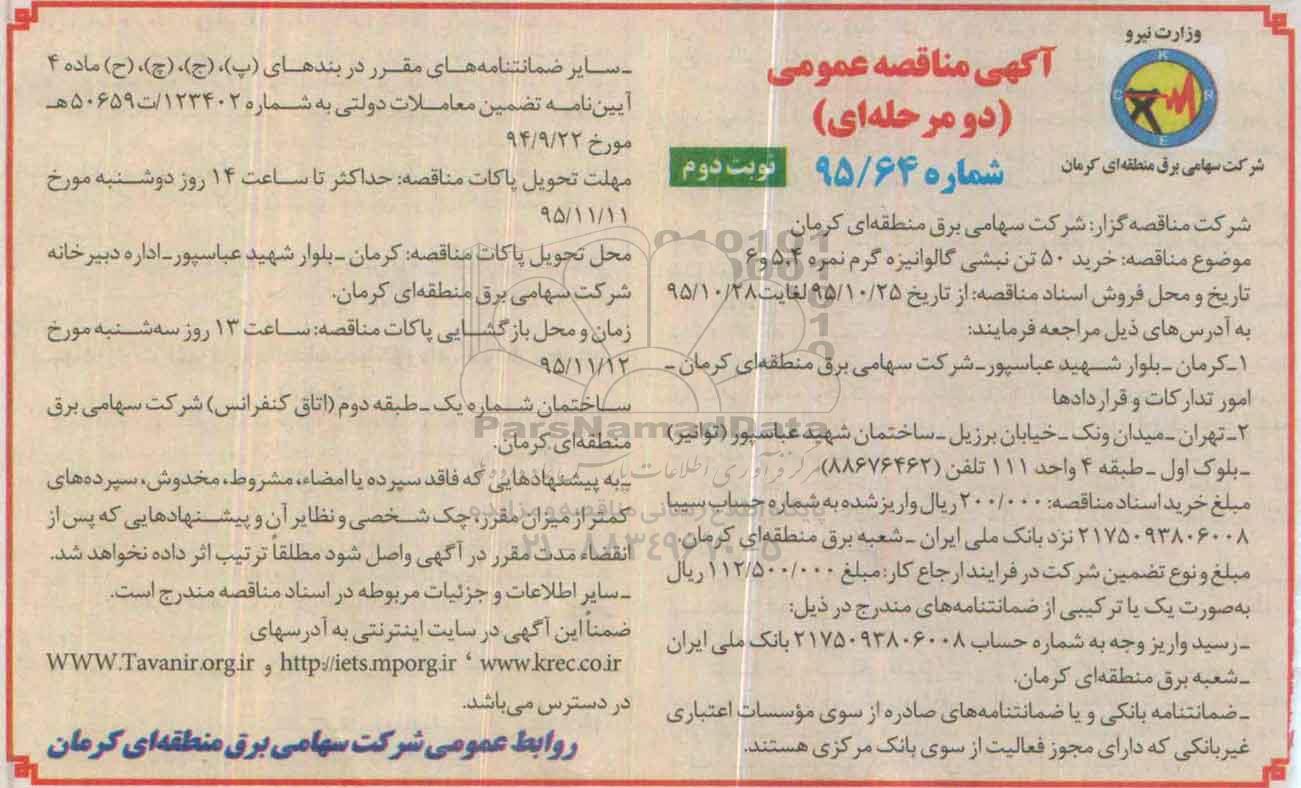 وزارت نیرو
شرکت سهامی برق منطقه‌ای کرمان
آگهی مناقصه عمومی
(دو مرحله‌ای)
شماره ۹۵/۶۴
نوبت دوم
شرکت مناقصه گزار: شرکت سهامی برق منطقه‌ای کرمان
موضوع مناقصه: خرید ۵۰ تن نبشی گالوانیزه گرم نمره ۵،۴ و ۶
تاریخ و محل فروش اسناد مناقصه: از تاریخ ۹۵/۱۰/۲۵ لغایت ۹۵/۱۰/۲۸
به آدرس‌های ذیل مراجعه فرمایند:
۱ـ کرمان ـ بلوار شهید عباسپور ـ شرکت سهامی برق منطقه‌ای کرمان ـ
امور تدارکات و قراردادها
۲ـ تهران ـ میدان ونک ـ خیابان برزیل ـ ساختمان شهید عباسپور (توانیر)
ـ بلوک اول ـ طبقه ۴ واحد ۱۱۱ تلفن (۸۸۶۷۶۴۶۲)
مبلغ خرید اسناد مناقصه: ۲۰۰/۰۰۰ ریال واریز شده به شماره حساب سیبا
۲۱۷۵۰۹۳۸۰۶۰۰۸ نزد بانک ملی ایران ـ شعبه برق منطقه‌ای کرمان.
مبلغ و نوع تضمین شرکت در فرایند ارجاع کار: مبلغ ۱۱۲/۵۰۰/۰۰۰ ریال
به‌صورت یک یا ترکیبی از ضمانتنامه‌های مندرج در ذیل:
ـ رسید واریز وجه به شماره حساب ۲۱۷۵۰۹۳۸۰۶۰۰۸ بانک ملی ایران
ـ شعبه برق منطقه‌ای کرمان.
ـ ضمانتنامه بانکی و یا ضمانتنامه‌های صادره از سوی مؤسسات اعتباری
غیربانکی که دارای مجوز فعالیت از سوی بانک مرکزی هستند.
ـ سایر ضمانتنامه‌های مقرر در بندهای (پ)، (ج)، (چ)، (ح) ماده ۴
آیین‌نامه تضمین معاملات دولتی به شماره ۱۲۳۴۰۲/ت۵۰۶۵۹هـ
مورخ ۹۴/۹/۲۲
مهلت تحویل پاکات مناقصه: حداکثر تا ساعت ۱۴ روز دوشنبه مورخ
۹۵/۱۱/۱۱
محل تحویل پاکات مناقصه: کرمان ـ بلوار شهید عباسپور ـ اداره دبیرخانه
شرکت سهامی برق منطقه‌ای کرمان.
زمان و محل بازگشایی پاکات مناقصه: ساعت ۱۳ روز سه‌شنبه مورخ
۹۵/۱۱/۱۲
ساختمان شماره یک ـ طبقه دوم (اتاق کنفرانس) شرکت سهامی برق
منطقه‌ای کرمان.
ـ به پیشنهادهایی که فاقد سپرده یا امضاء، مشروط، مخدوش، سپرده‌های
کمتر از میزان مقرر، چک شخصی و نظایر آن و پیشنهادهایی که پس از
انقضاء مدت مقرر در آگهی واصل شود مطلقاً ترتیب اثر داده نخواهد شد.
ـ سایر اطلاعات و جزئیات مربوطه در اسناد مناقصه مندرج است.
ضمناً این آگهی در سایت اینترنتی به آدرسهای
www.krec.co.ir ، http://iets.mporg.ir و WWW.Tavanir.org.ir
در دسترس می‌باشد.
روابط عمومی شرکت سهامی برق منطقه‌ای کرمان
ParsNamadData